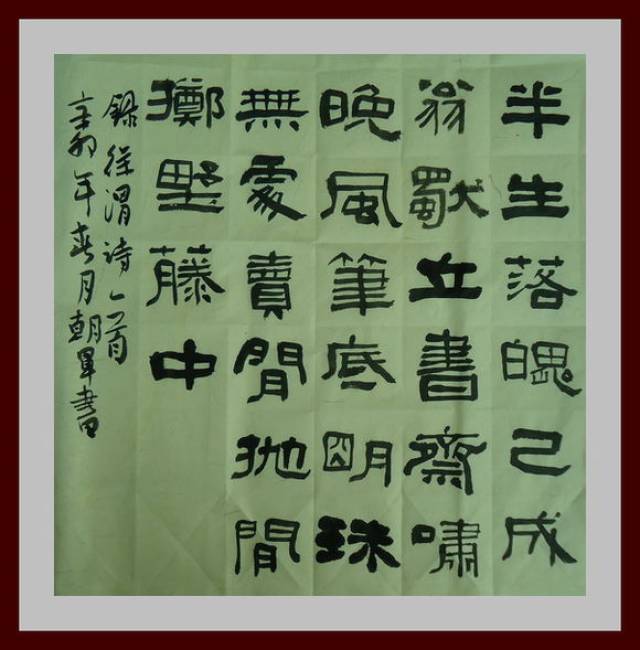 半生落魄已成
翁獨立書齋嘯
晚風筆底明珠
無處賣閒拋閒
擲野藤中
錄徐渭詩一首
辛卯年春月朝軍書